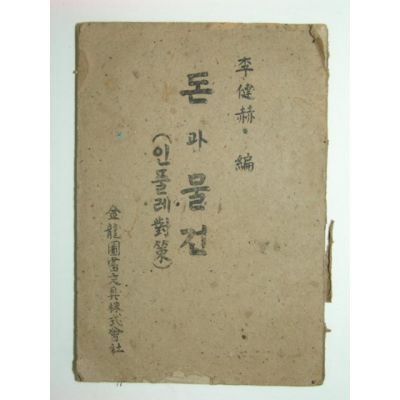 李健赫·編
돈과물건
(인플레對策)
金龍圖書文具株式會社